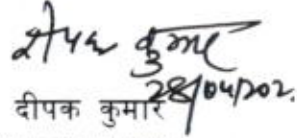 दीपक कुमार
28/04/202.
दीपक कुमार